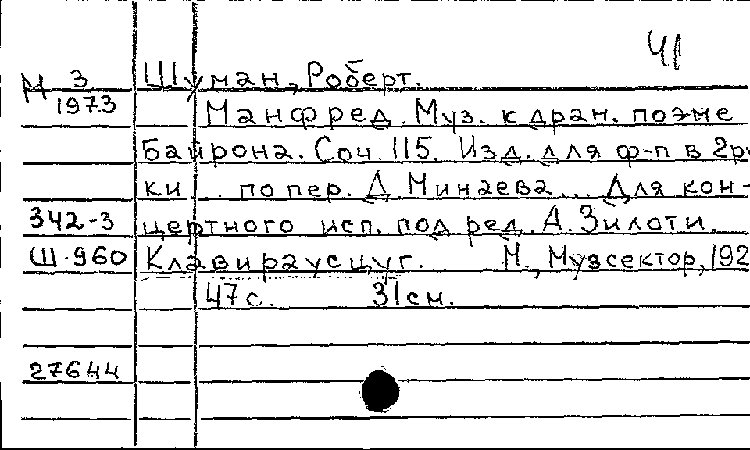 41
М 3 Шуман, Роберт.
1973 Манфред. Муз. к драм. поэме
Байрона. Соч. 115. Изд. для ф-п в 2 ру
ки ... по пер. Д Минаева ... Для кон-
342-3 цертного исп. под ред. А. Зилоти.
Ш-960 Клавираусцуг. М., Музсектор, 192
47 с. 31 см.
27644